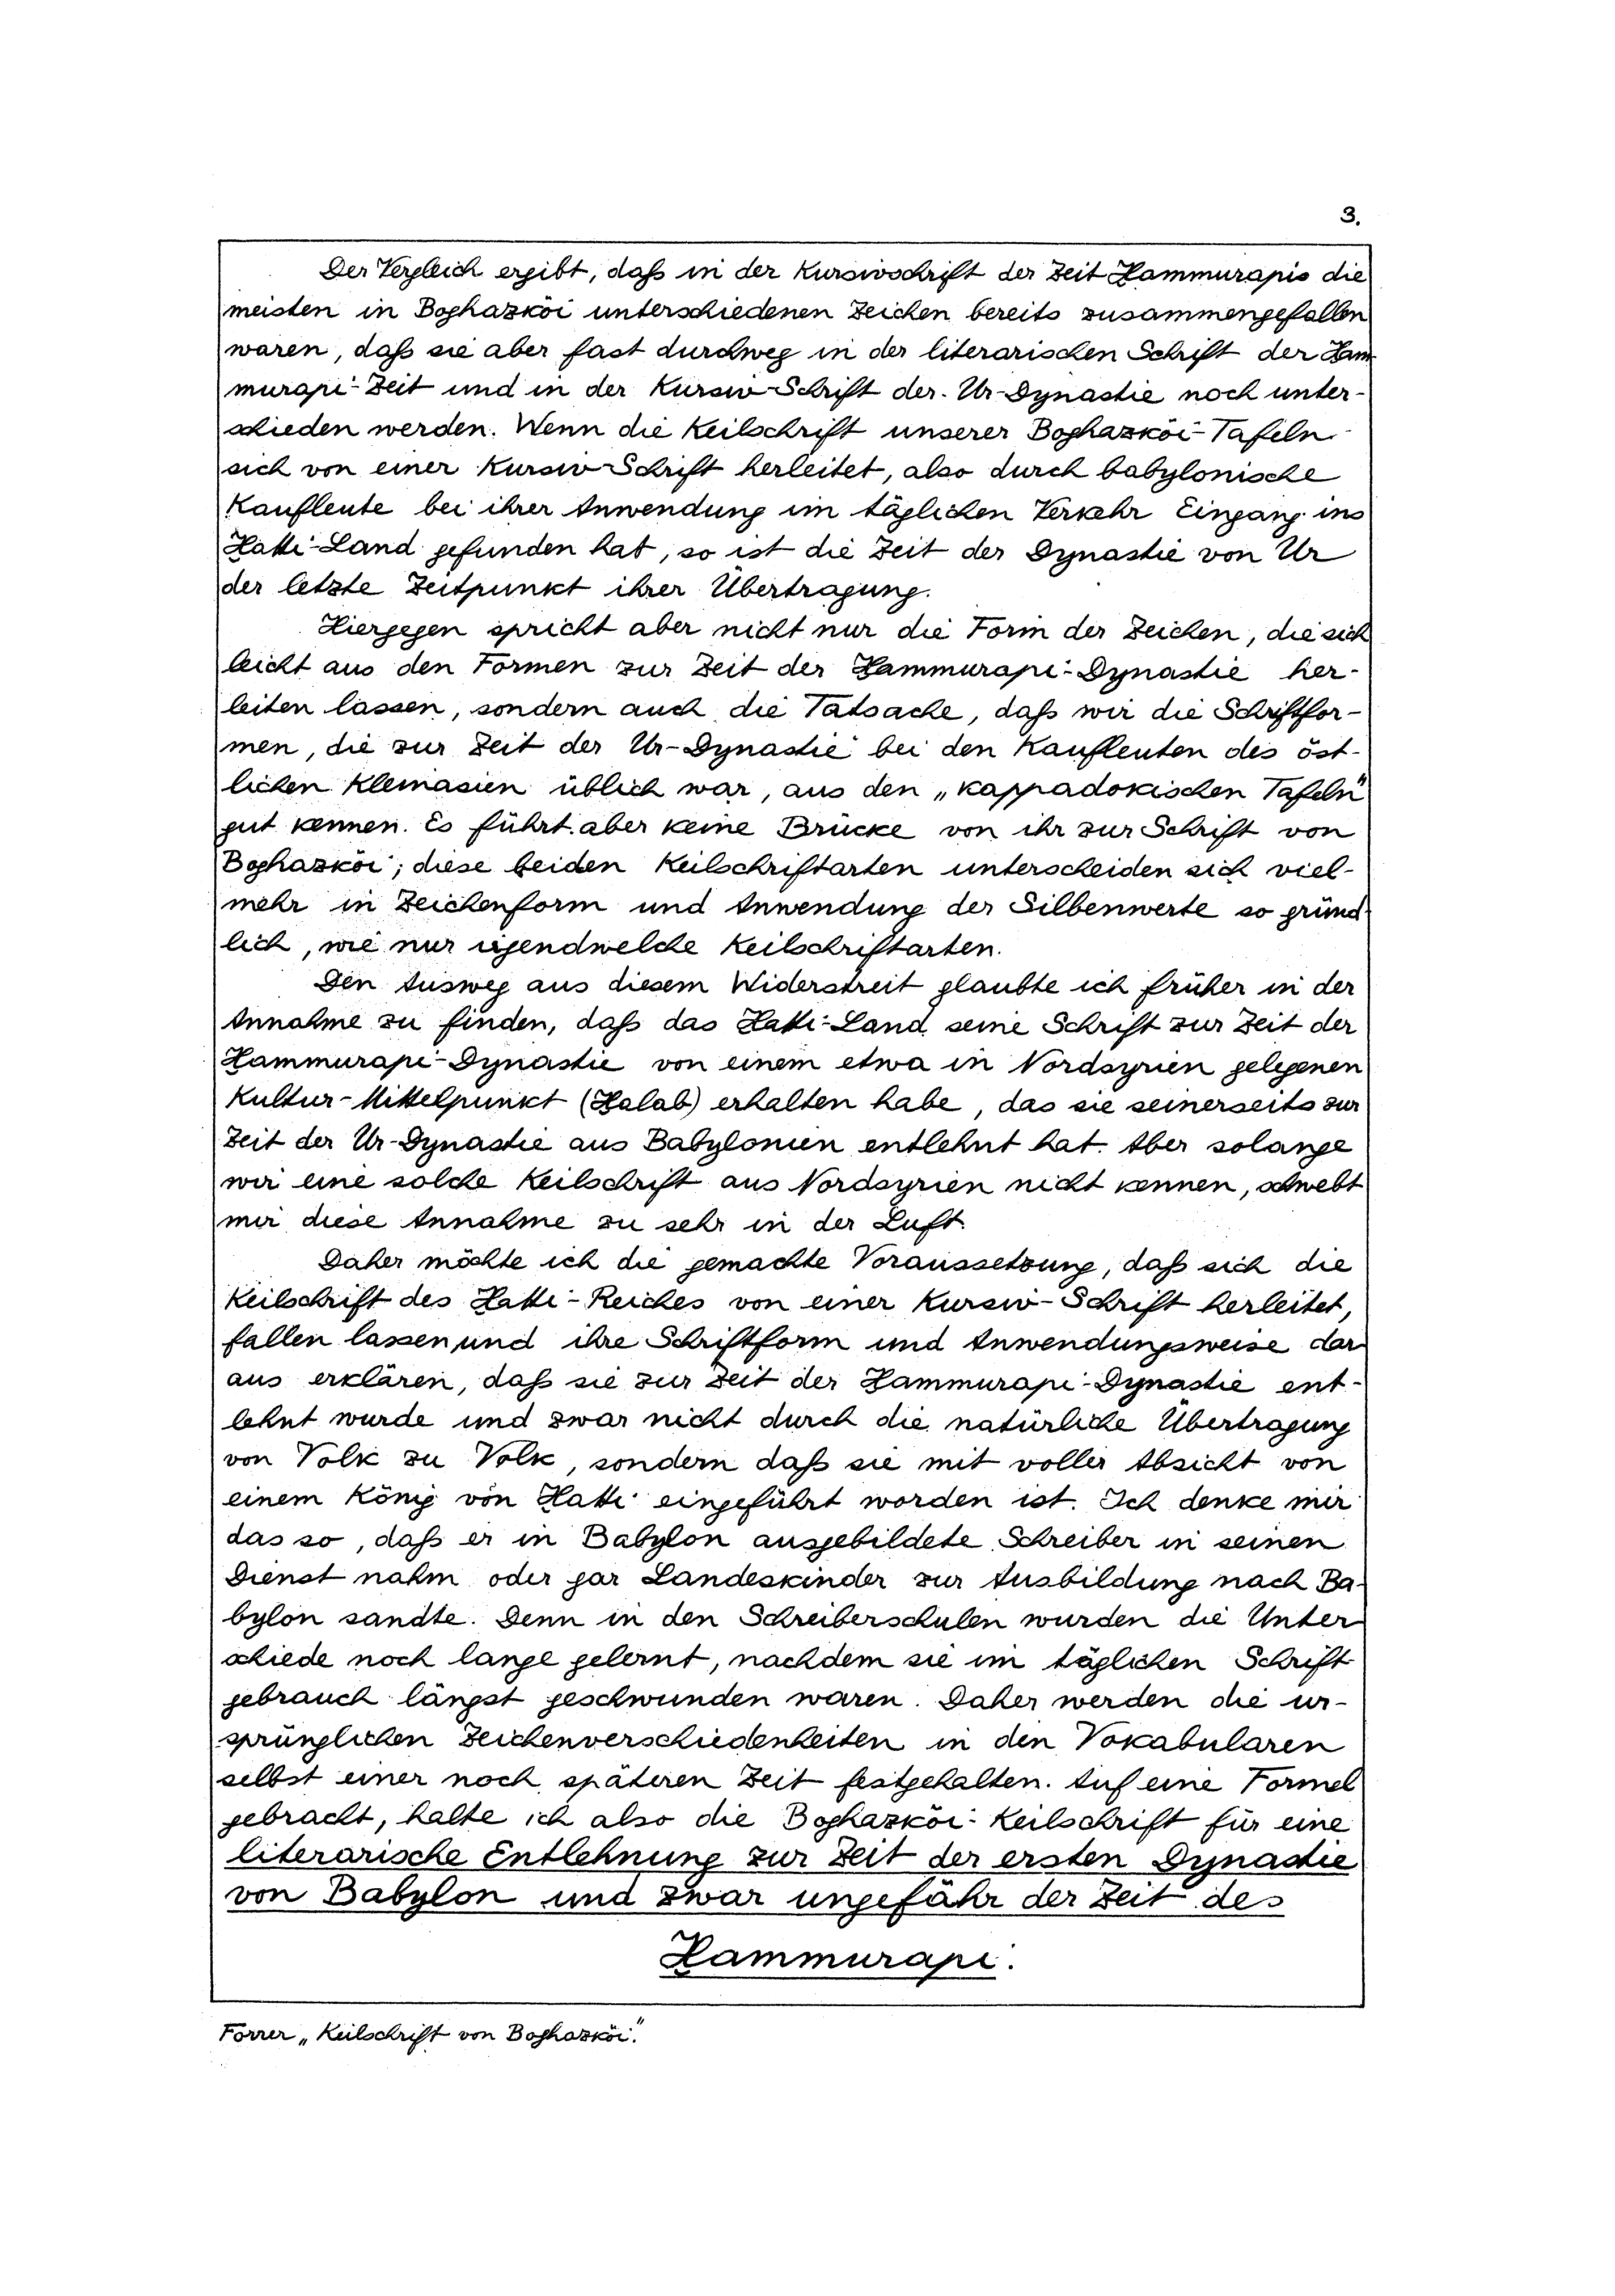 3.
Der Vergleich ergibt, daß in der Kursivschrift der Zeit Hammurapis die
meisten in Boghazköi unterschiedenen Zeichen bereits zusammengefallen
waren, daß sie aber fast durchweg in der literarischen Schrift der Ham-
murapi-Zeit und in der Kursiv-Schrift der Ur-Dynastie noch unter-
schieden werden. Wenn die Keilschrift unserer Boghazköi-Tafeln
sich von einer Kursiv-Schrift herleitet, also durch babylonische
Kaufleute bei ihrer Anwendung im täglichen Verkehr Eingang ins
Hatti-Land gefunden hat, so ist die Zeit der Dynastie von Ur
der letzte Zeitpunkt ihrer Übertragung.
Hiergegen spricht aber nicht nur die Form der Zeichen, die sich
leicht aus den Formen zur Zeit der Hammurapi-Dynastie her-
leiten lassen, sondern auch die Tatsache, daß wir die Schriftfor-
men, die zur Zeit der Ur-Dynastie bei den Kaufleuten des öst-
lichen Kleinasien üblich war, aus den „kappadokischen Tafeln"
gut kennen. Es führt aber keine Brücke von ihr zur Schrift von
Boghazköi; diese beiden Keilschriftarten unterscheiden sich viel-
mehr in Zeichenform und Anwendung der Silbenwerte so gründ-
lich, wie nur irgendwelche Keilschriftarten.
Den Ausweg aus diesem Widerstreit glaubte ich früher in der
Annahme zu finden, daß das Hatti-Land seine Schrift zur Zeit der
Hammurapi-Dynastie von einem etwa in Nordsyrien gelegenen
Kultur-Mittelpunkt (Halab) erhalten habe, das sie seinerseits zur
Zeit der Ur-Dynastie aus Babylonien entlehnt hat. Aber solange
wir eine solche Keilschrift aus Nordsyrien nicht kennen, schwebt
mir diese Annahme zu sehr in der Luft.
Daher möchte ich die gemachte Voraussetzung, daß sich die
Keilschrift des Hatti-Reiches von einer Kursiv-Schrift herleitet,
fallen lassen und ihre Schriftform und Anwendungsweise dar-
aus erklären, daß sie zur Zeit der Hammurapi-Dynastie ent-
lehnt wurde und zwar nicht durch die natürliche Übertragung
von Volk zu Volk, sondern daß sie mit voller Absicht von
einem König von Hatti eingeführt worden ist. Ich denke mir
das so, daß er in Babylon ausgebildete Schreiber in seinen
Dienst nahm oder gar Landeskinder zur Ausbildung nach Ba-
bylon sandte. Denn in den Schreiberschulen wurden die Unter-
schiede noch lange gelernt, nachdem sie im täglichen Schrift-
gebrauch längst geschwunden waren. Daher werden die ur-
sprünglichen Zeichenverschiedenheiten in den Vokabularen
selbst einer noch späteren Zeit festgehalten. Auf eine Formel
gebracht, halte ich also die Boghazköi-Keilschrift für eine
literarische Entlehnung zur Zeit der ersten Dynastie
von Babylon und zwar ungefähr der Zeit des
Hammurapi.
Forrer „Keilschrift von Boghazköi."